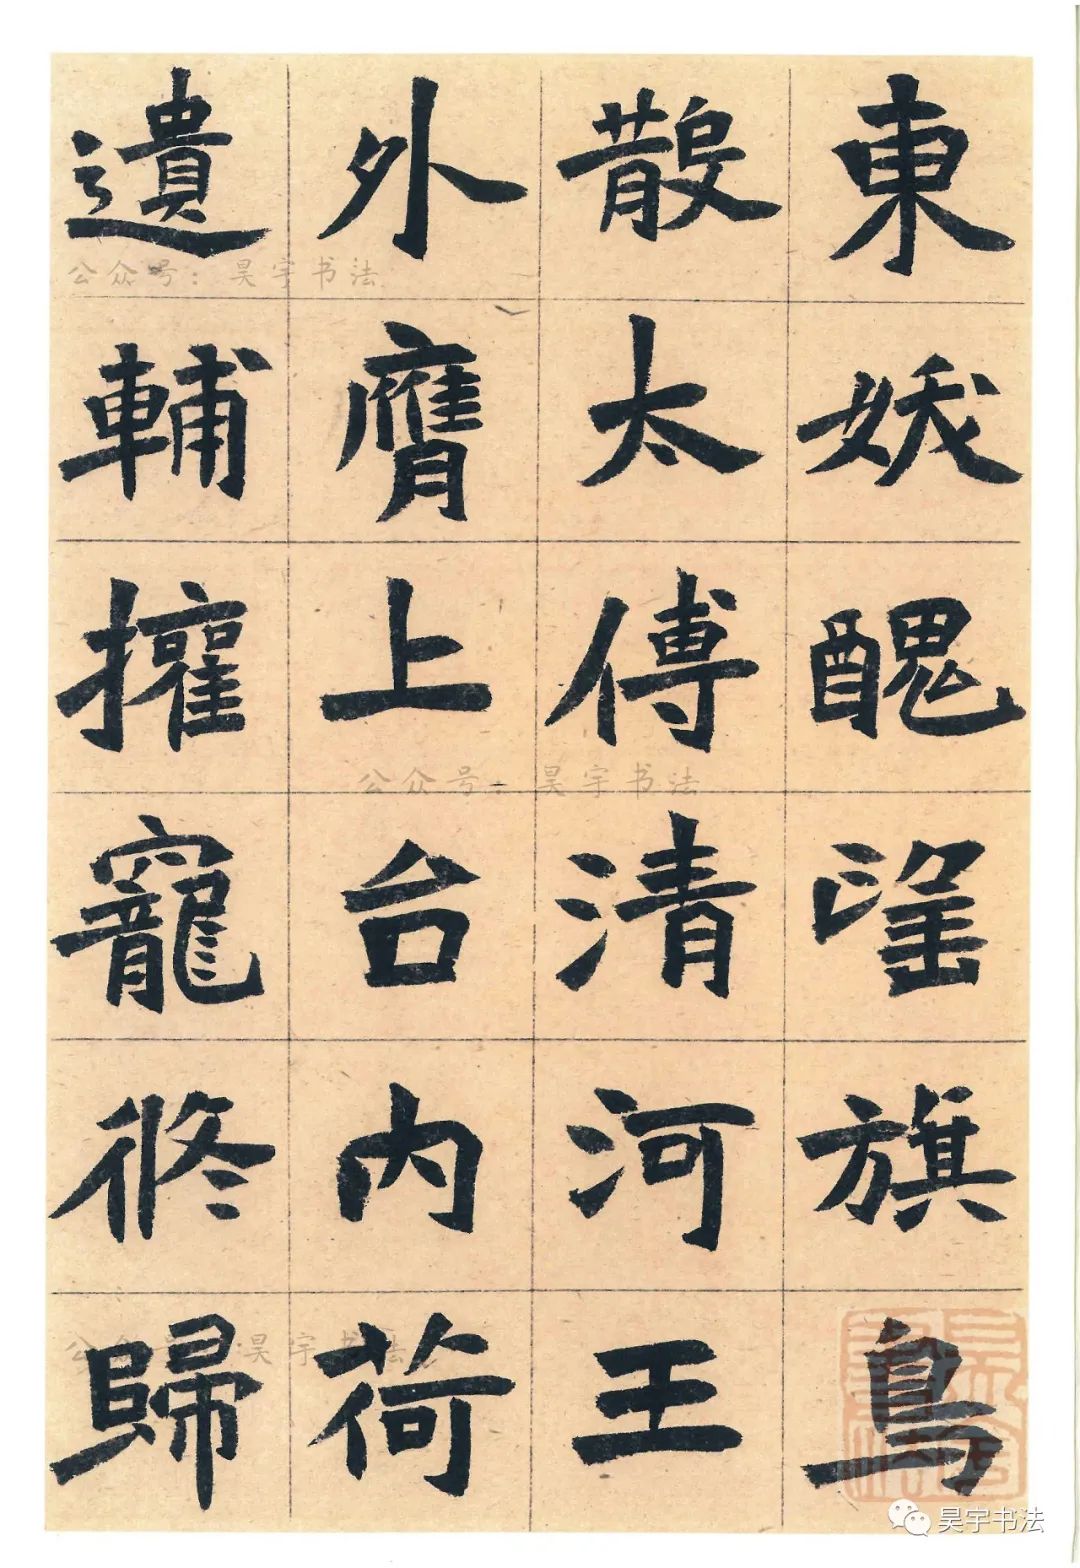 東妖醜望旗鳥
散太傅清河王
外膺上台内荷
遺輔權寵攸歸
公众号：昊宇书法
公众号：昊宇书法
公众号：昊宇书法
昊宇书法